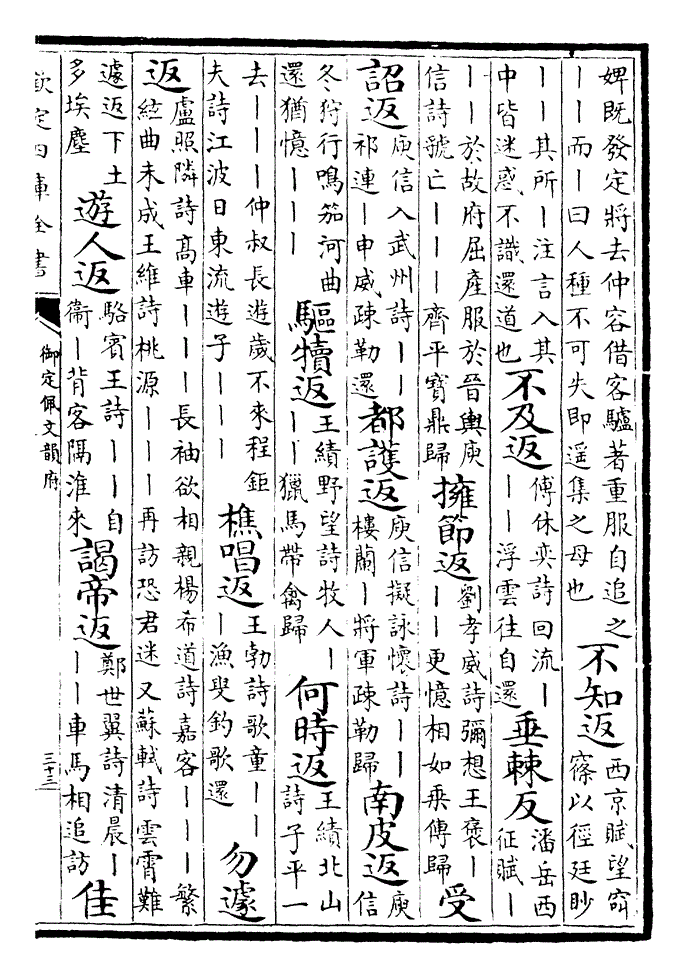 婢既發定將去仲容借客驢著重服自追之
——而—曰人種不可失即遥集之母也
不知返
西京賦望窵
窱以徑廷眇
——其所—注言入其
中皆迷惑不識還道也
不及返
傅休奕詩回流—
——浮雲往自還
垂棘反
潘岳西
征賦—
——於故府屈產服於晉輿庾
信詩號亡———齊平寶鼎歸
擁節返
劉孝威詩彌想王褒—
——更憶相如乘傳歸
受
詔返
庾信入武州詩——
祁連—申威疎勒還
都護返
庾信擬詠懷詩——
樓蘭—將軍疎勒歸
南皮返
庾
信
冬狩行鳴笳河曲
還猶憶———
驅犢返
王績野望詩牧人—
——獵馬帶禽歸
何時返
王績北山
詩子平一
去———仲叔長遊歲不來程鉅
夫詩江波日東流遊子———
樵唱返
王勃詩歌童——
—漁叟釣歌還
勿遽
返
盧照隣詩高車———長袖欲相親楊希道詩嘉客———繁
絃曲未成王維詩桃源———再訪恐君迷又蘇軾詩雲霄難
遽返下土
多埃塵
遊人返
駱賓王詩——自
衞—背客隔淮來
謁帝返
鄭世翼詩清晨—
——車馬相追訪
佳
欽定四庫全書
御定佩文韻府
三十三